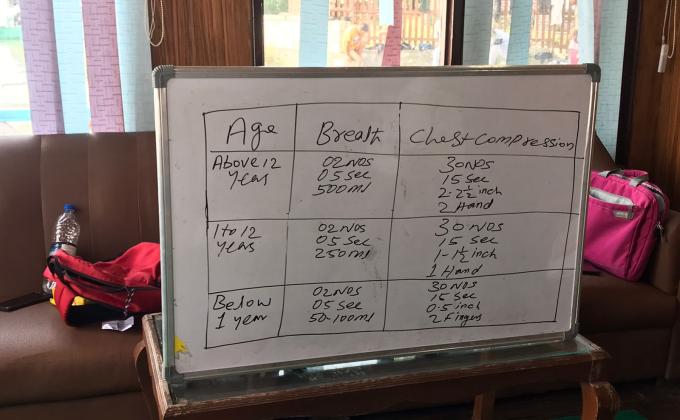 Age
Breath
Chest Compression
Above 12
Years
02 Nos
05 Sec
500 ml
30 Nos
15 Sec
2-2½ inch
2 Hand
1 to 12
Years
02 Nos
05 Sec
250 ml
30 Nos
15 Sec
1-1½ inch
1 Hand
Below
1 year
02 Nos
05 Sec
50-100 ml
30 Nos
15 Sec
0.5 inch
2 Fingers